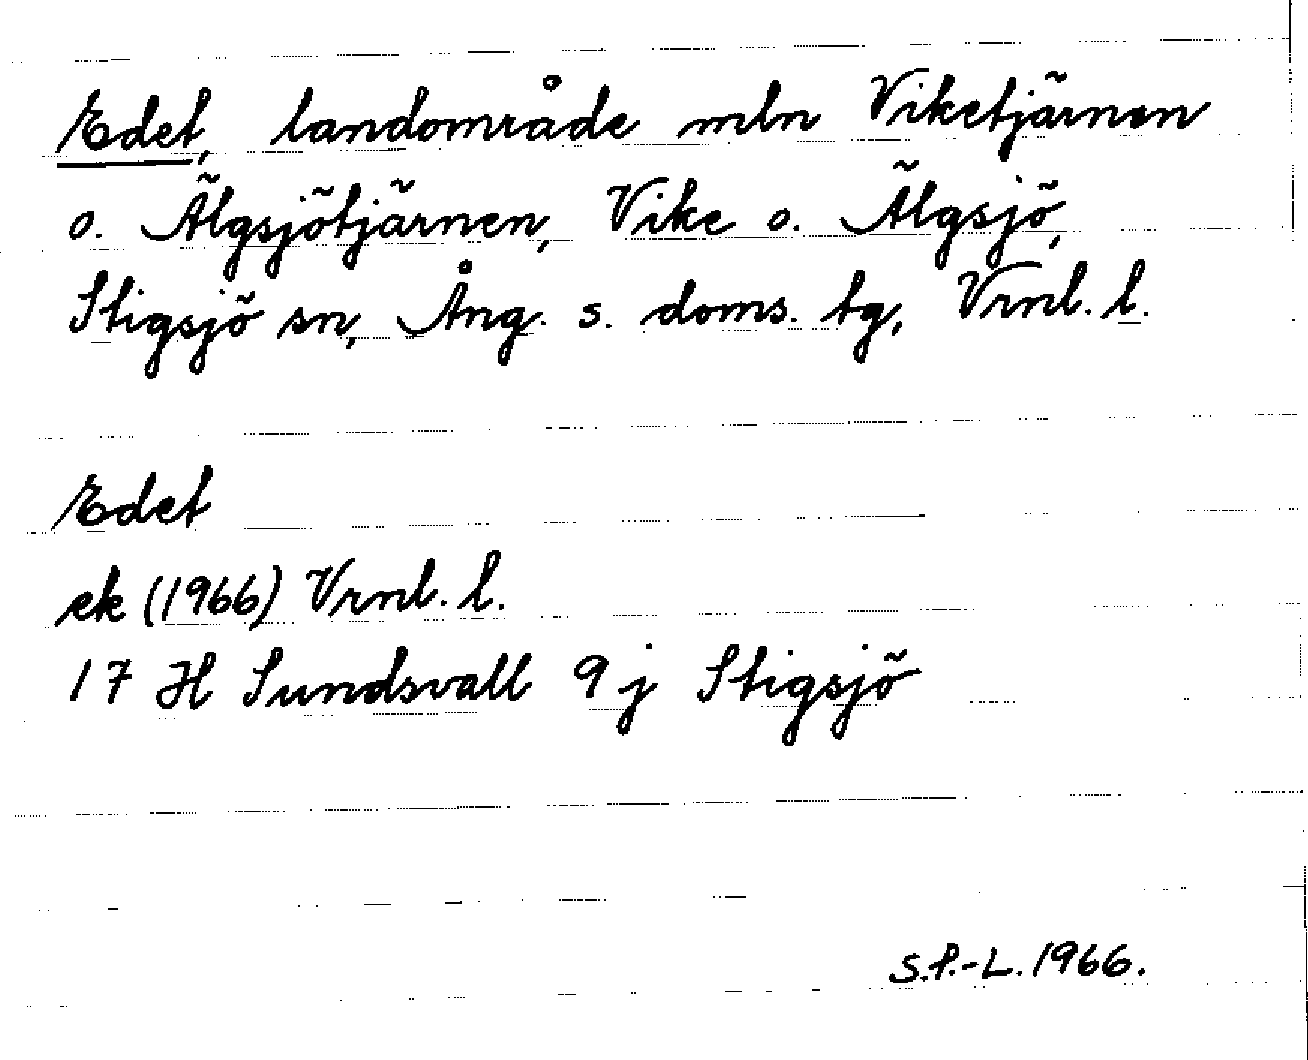 Edet, landområde mln Viketjärnen
o. Älgsjötjärnen, Vike o. Älgsjö,
Stigsjö sn, Ång. s. doms. tg, Vrnl. l.
Edet
ek (1966) Vrnl. l.
17 H Sundsvall 9 j Stigsjö
S.P.-L. 1966.